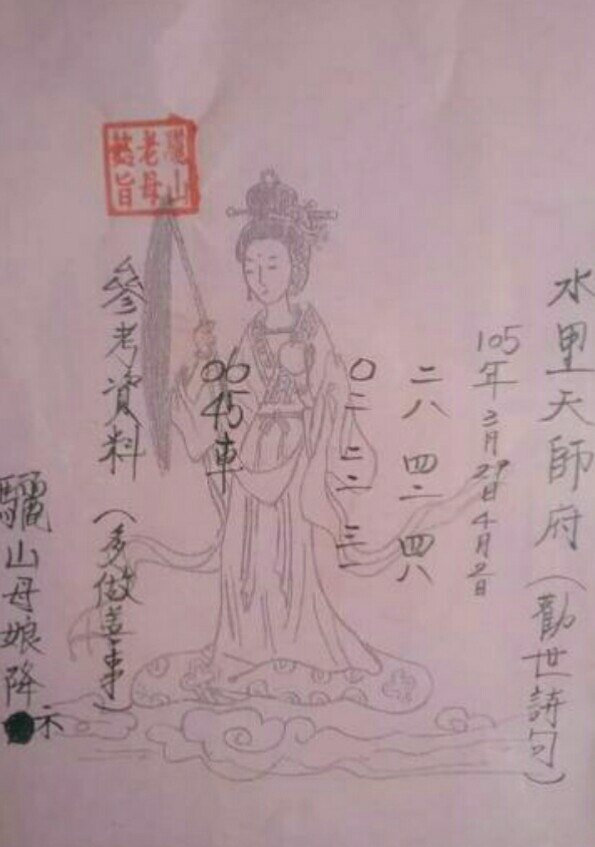 水里天師府(勸世詩句)
105年3月29日4月2日
二八 四二 四八
〇二 二二 三一
00 45 車
驪山老母懿旨
參考資料(多做善事)
驪山母娘降示